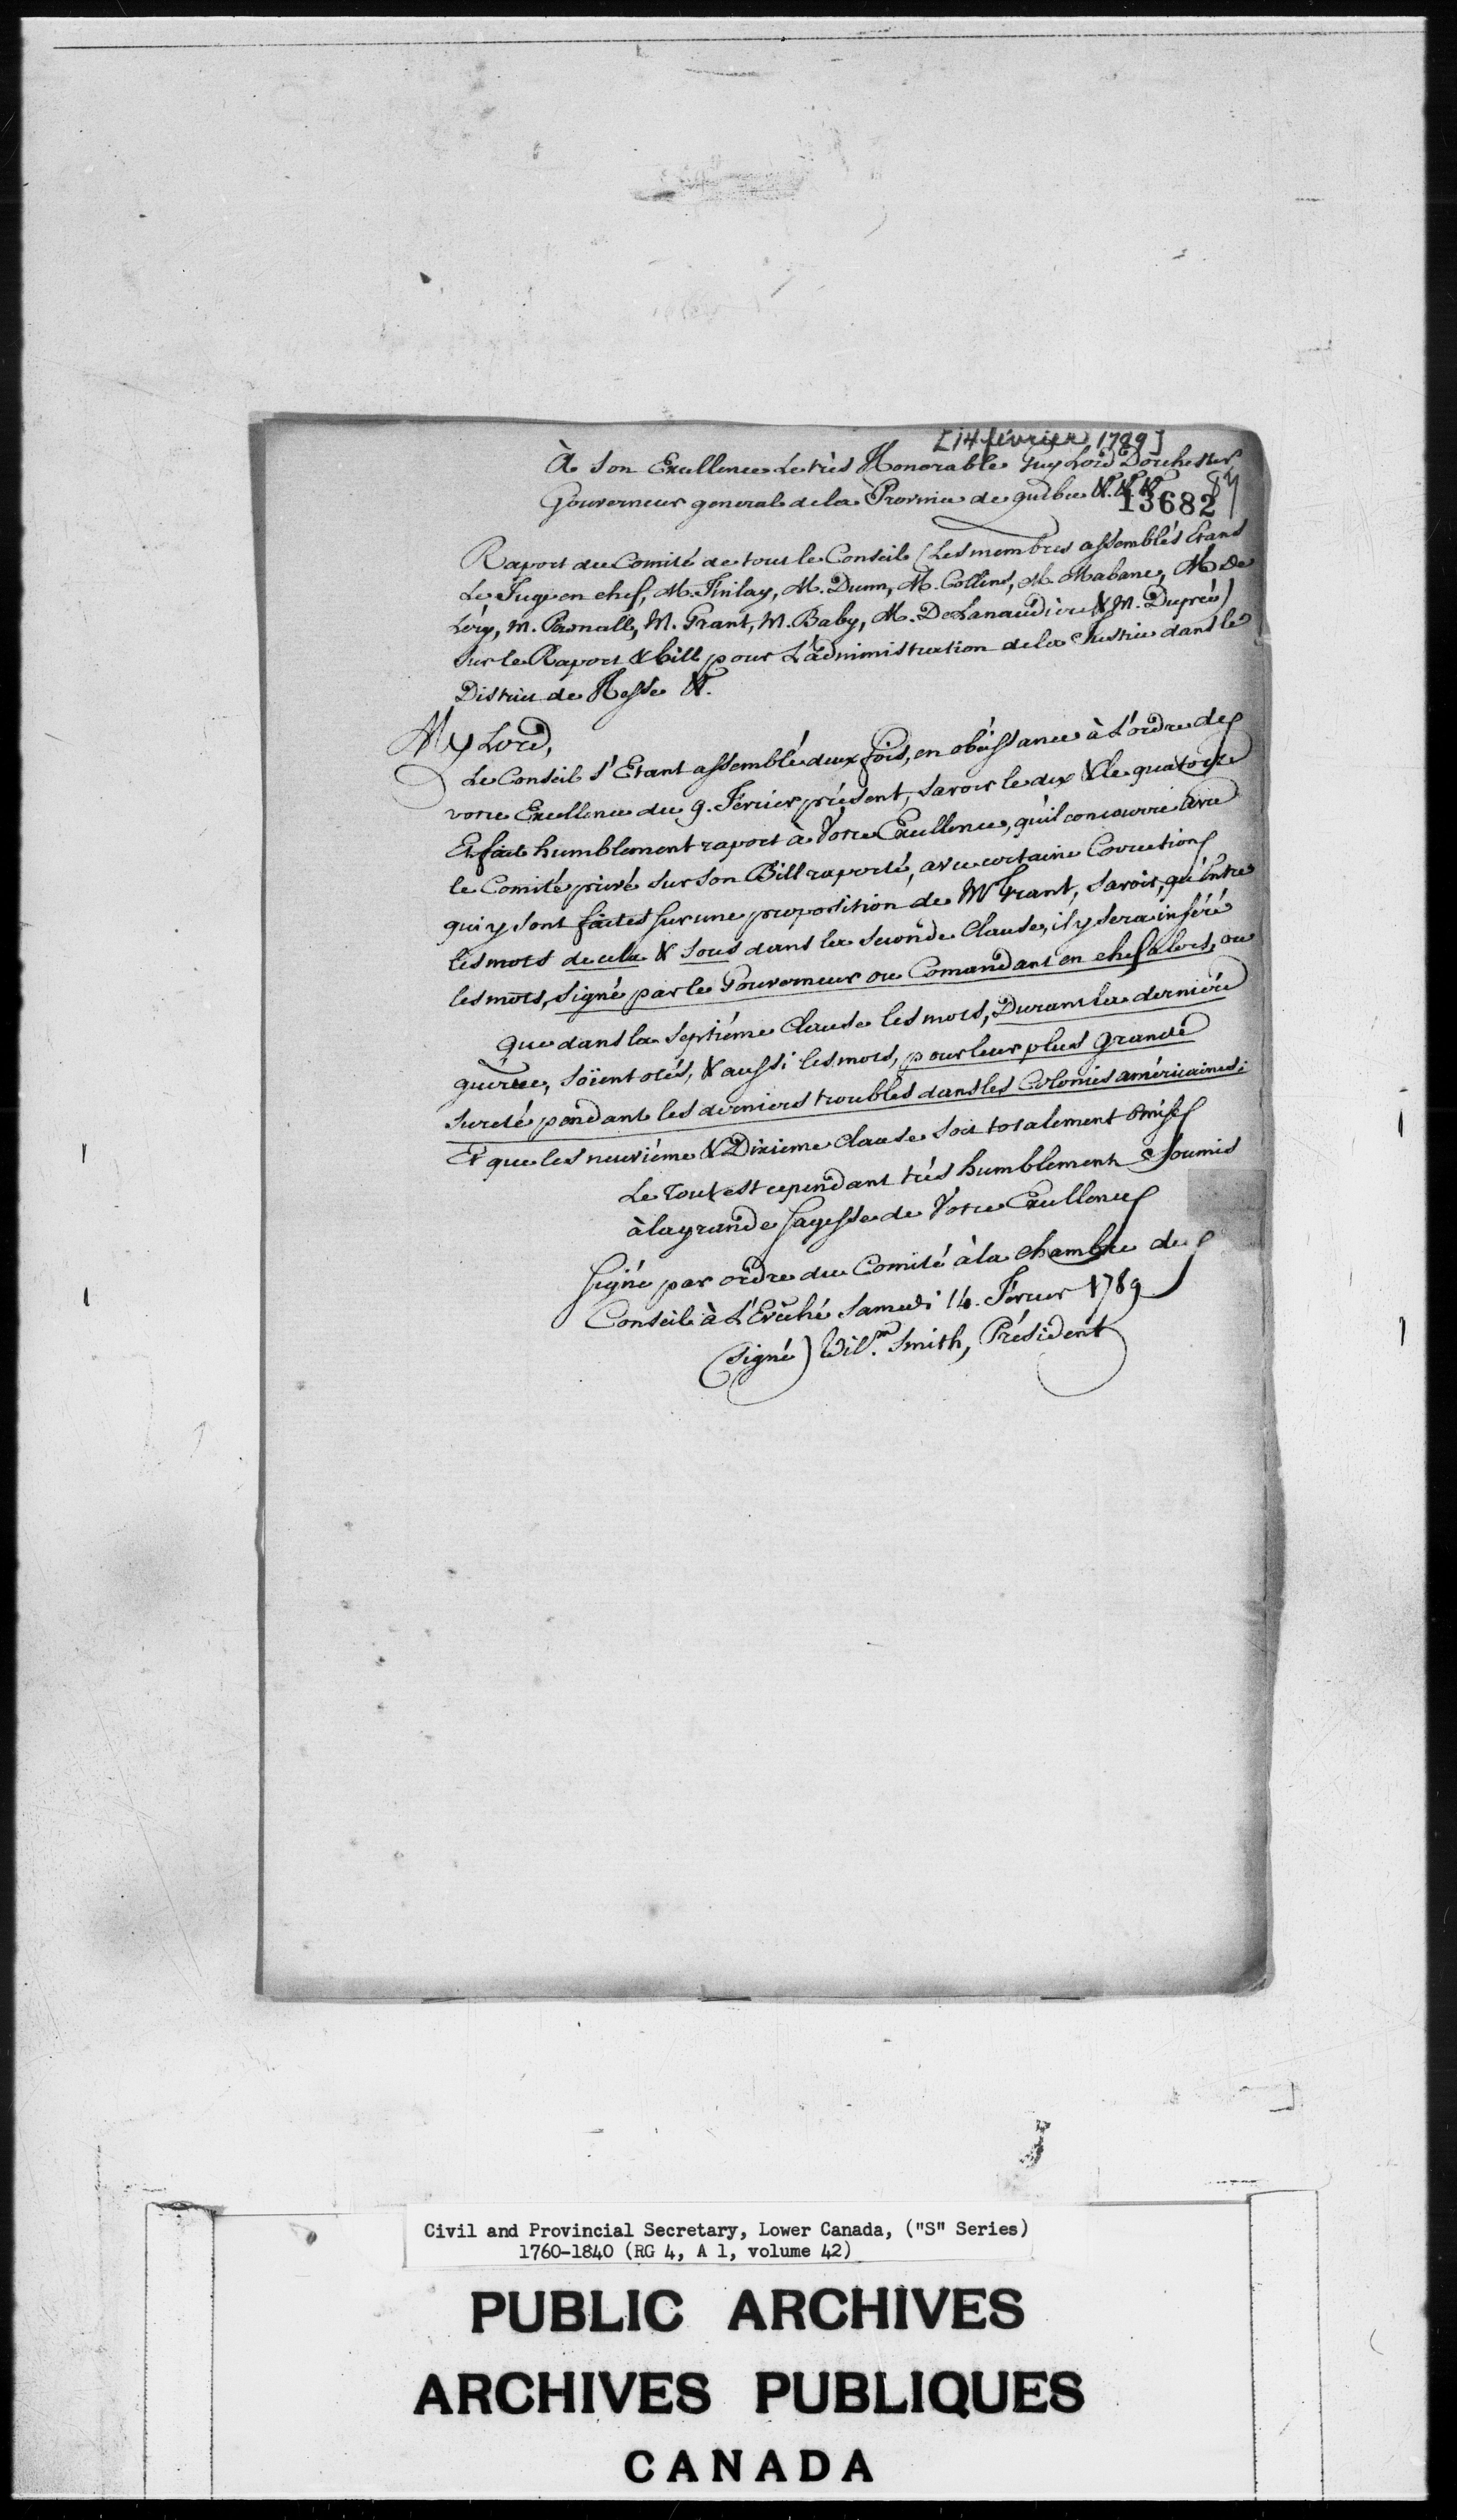 [14 février 1789]
À Son Excellence Le très Honorable Guy Lord Dorchester
Gouverneur general de la Province de quebec &. &. &.
13682
Raport du Comité de tout le Conseil (Les membres assemblés Etand
Le Juge en chef, M. Finlay, M. Dunn, M. Collins, M. Mabane, M De
Léry, M. Pownall, M. Grant, M. Baby, M. DeLanaudiere & M. Dupréé)
Sur le Raport & bill pour L'administration de la Justice dans le
District de Hesse &.
My Lord,
Le Conseil s'Etant assemblé deux fois, en obéissance à L'ordre de
votre Excellence du 9. Février présent, Savoir le dix & le quatorze
Et fait humblement raport à Votre Excellence, qu'il concourre avec
le Comité privé sur son Bill raporté, avec certaine Correction
qui y sont faites sur une proposition de Mr Grant, Savoir, qu'Entre
les mots de cela & sous dans la Seconde Clause, il y sera inséré
les mots, signé par le Gouverneur ou Comandant en chef alors, ou
que dans la Septiéme Clause les mots, Durant la derniére
guerre, soient otés, & aussi les mots, pour leur plus grande
sureté pendant les derniers troubles dans les Colonies américaines;
Et que les neuviéme & Dixieme Clause soit totalement omise
Le Tout est cependant très humblement Soumis
à la grande Sagesse de Votre Excellence
Signé par ordre du Comité à la chambre de
Conseil à L'Evêché Samedi 14. Février 1789
(Signé) Wilm. Smith, Président
Civil and Provincial Secretary, Lower Canada, ("S" Series)
1760-1840 (RG 4, A 1, volume 42)
PUBLIC ARCHIVES
ARCHIVES PUBLIQUES
CANADA